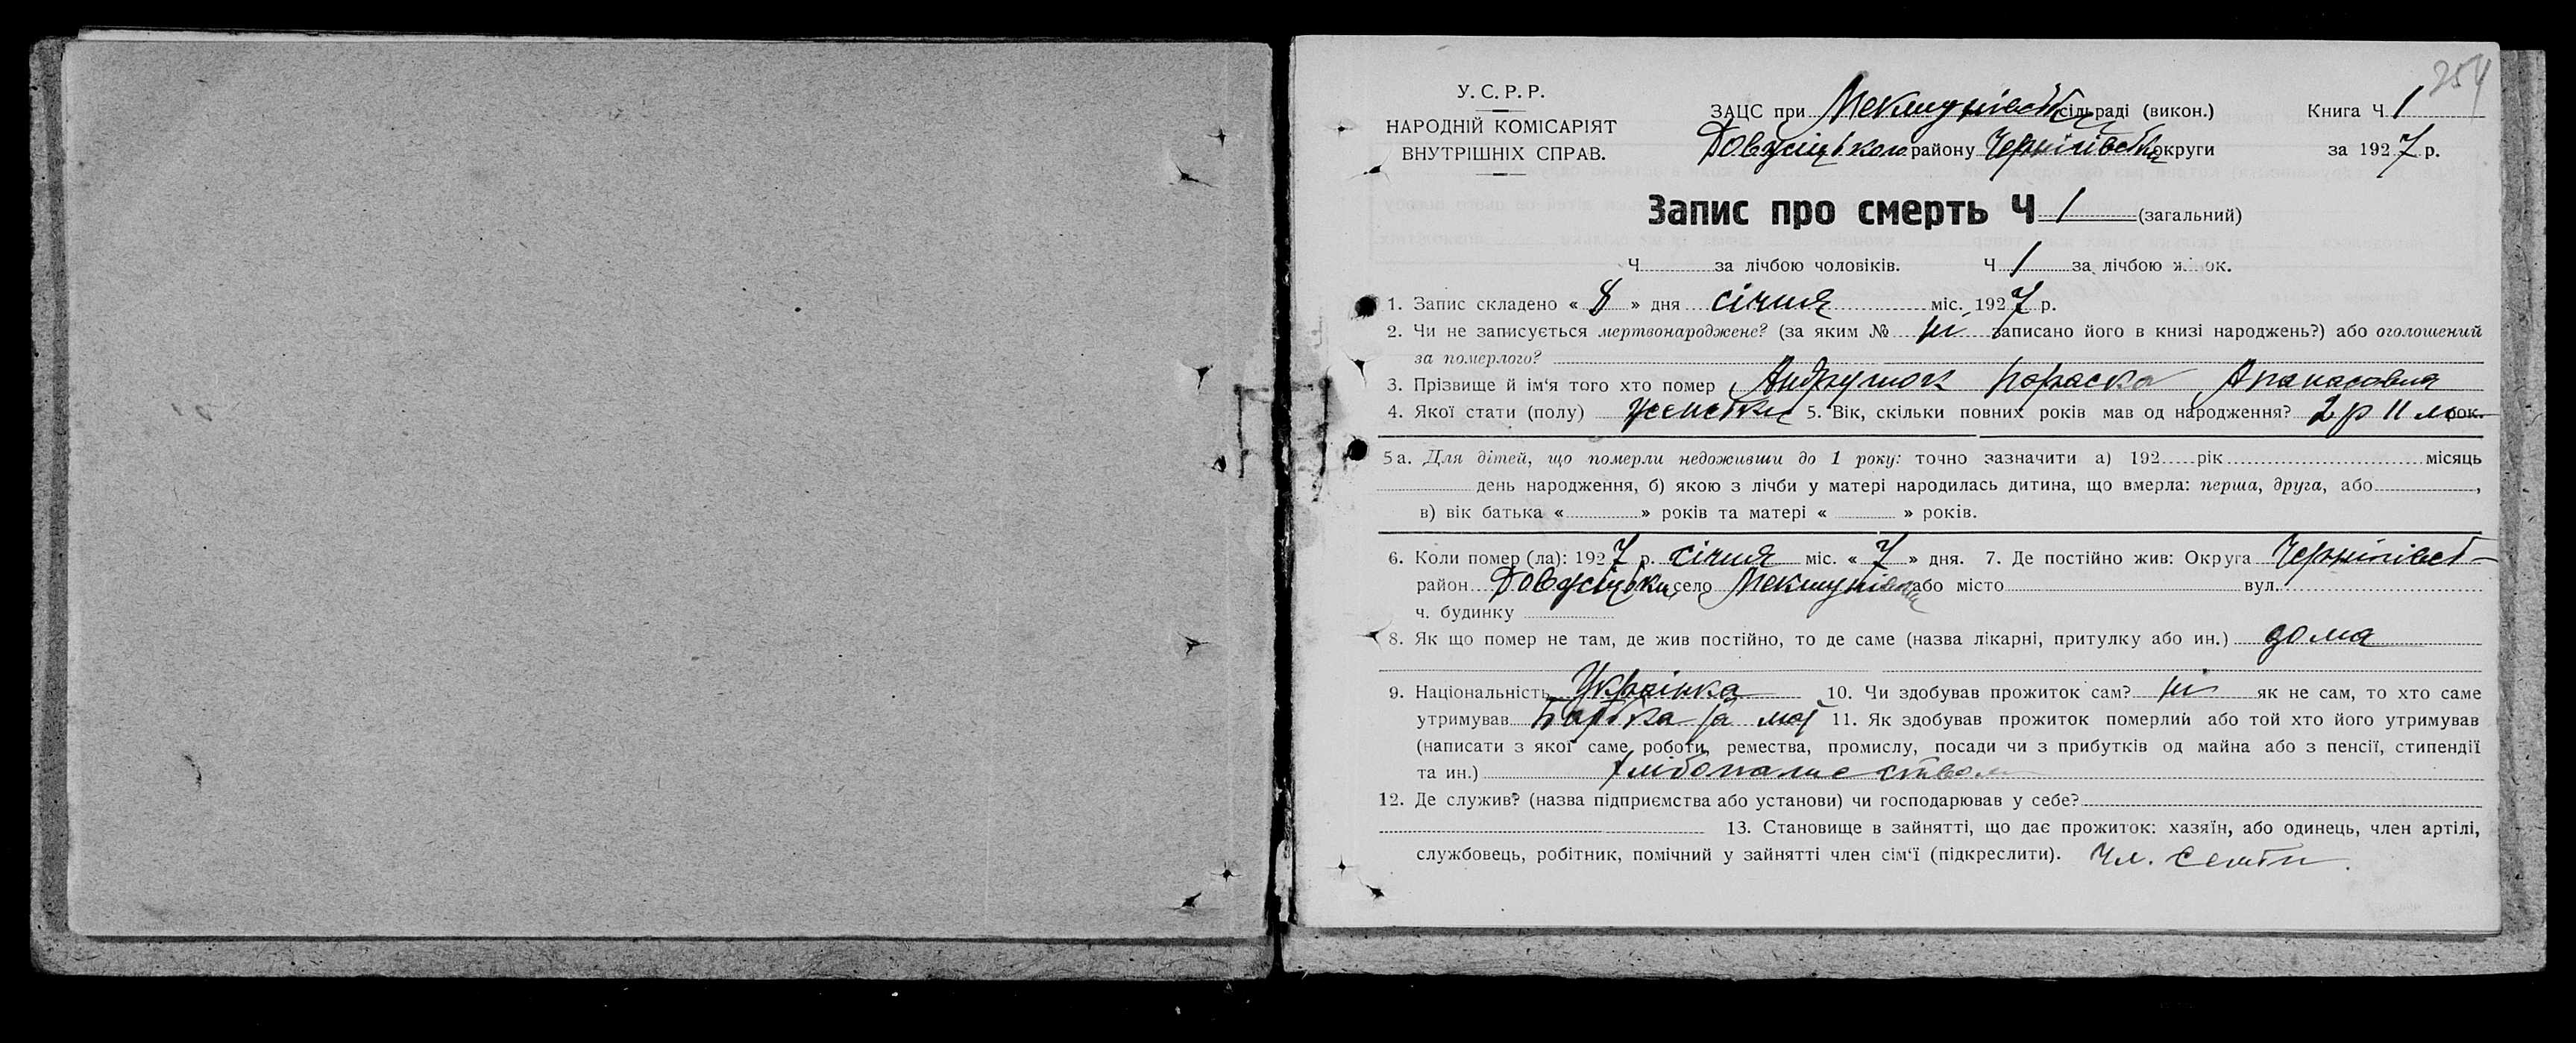 254
У. С. Р. Р.
НАРОДНІЙ КОМІСАРІЯТ
ВНУТРІШНІХ СПРАВ.
ЗАЦС при Мекшунівській сільраді (викон.)
Книга Ч 1
району Чернігівської округи
за 1927 р.
Запис про смерть Ч 1 (загальний)
Ч за лічбою чоловіків. Ч 1 за лічбою ж ок.
1. Запис складено « 8 » дня січня міс. 1927 р.
2. Чи не записується мертвонароджене? (за яким № ні записано його в книзі народжень?) або оголошений
за померлого?
3. Прізвище й ім'я того хто помер Андрушок Параска Апанасовна
4. Якої стати (полу) женськи 5. Вік, скільки повних років мав од народження? 2 р 11 м рок.
5а. Для дітей, що померли недоживши до 1 року: точно зазначити а) 192 рік місяць
день народження, б) якою з лічби у матері народилась дитина, що вмерла: перша, друга, або ,
в) вік батька « » років та матері « » років.
6. Коли помер (ла): 1927 р. січня міс. « 7 » дня. 7. Де постійно жив: Округа Чернігівськ
район село Мекшунівка або місто вул.
ч. будинку
8. Як що помер не там, де жив постійно, то де саме (назва лікарні, притулку або ин.) дома
9. Національність Українка 10. Чи здобував прожиток сам? ні як не сам, то хто саме
утримував Батька та мат 11. Як здобував прожиток померлий або той хто його утримував
(написати з якої саме роботи, ремества, промислу, посади чи з прибутків од майна або з пенсії, стипендії
та ин.) хлібопашеством
12. Де служив? (назва підприємства або установи) чи господарював у себе?
13. Становище в зайнятті, що дає прожиток: хазяїн, або одинець, член артілі,
службовець, робітник, помічний у зайнятті член сім'ї (підкреслити). Чл. семьи.